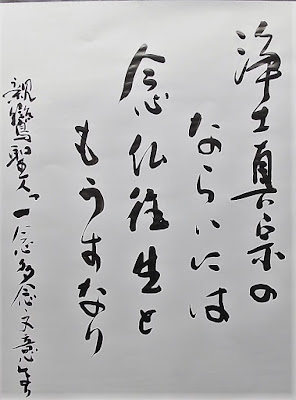 浄土真宗の
ならいには
念仏往生と
もうすなり
親鸞聖人「一念多念文意